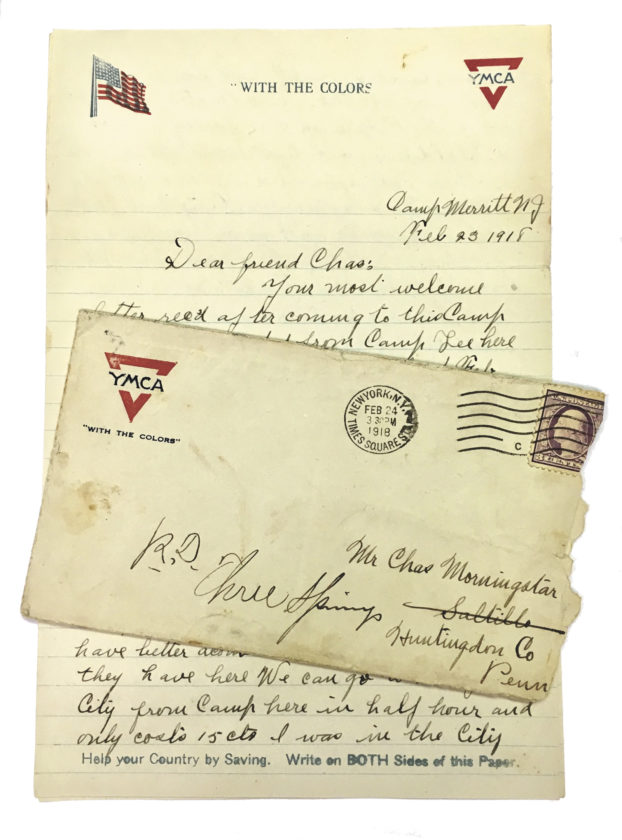 "WITH THE COLORS
YMCA
Camp Merritt NJ
Feb 23 1918
Dear friend Chas:
Your most welcome
letter recd after coming to this Camp
from Camp Lee here
Feb
YMCA
"WITH THE COLORS"
NEW YORK, N.Y.
FEB 24
3 30 PM
1918
TIMES SQUARE STA.
C
R.D.
Three Springs
Mr Chas Morningstar
Saltillo
Huntingdon Co
Penn
have better acom
they have here We can go
City from Camp here in half hour and
only costs 15 cts I was in the City
Help your Country by Saving. Write on BOTH Sides of this Paper.